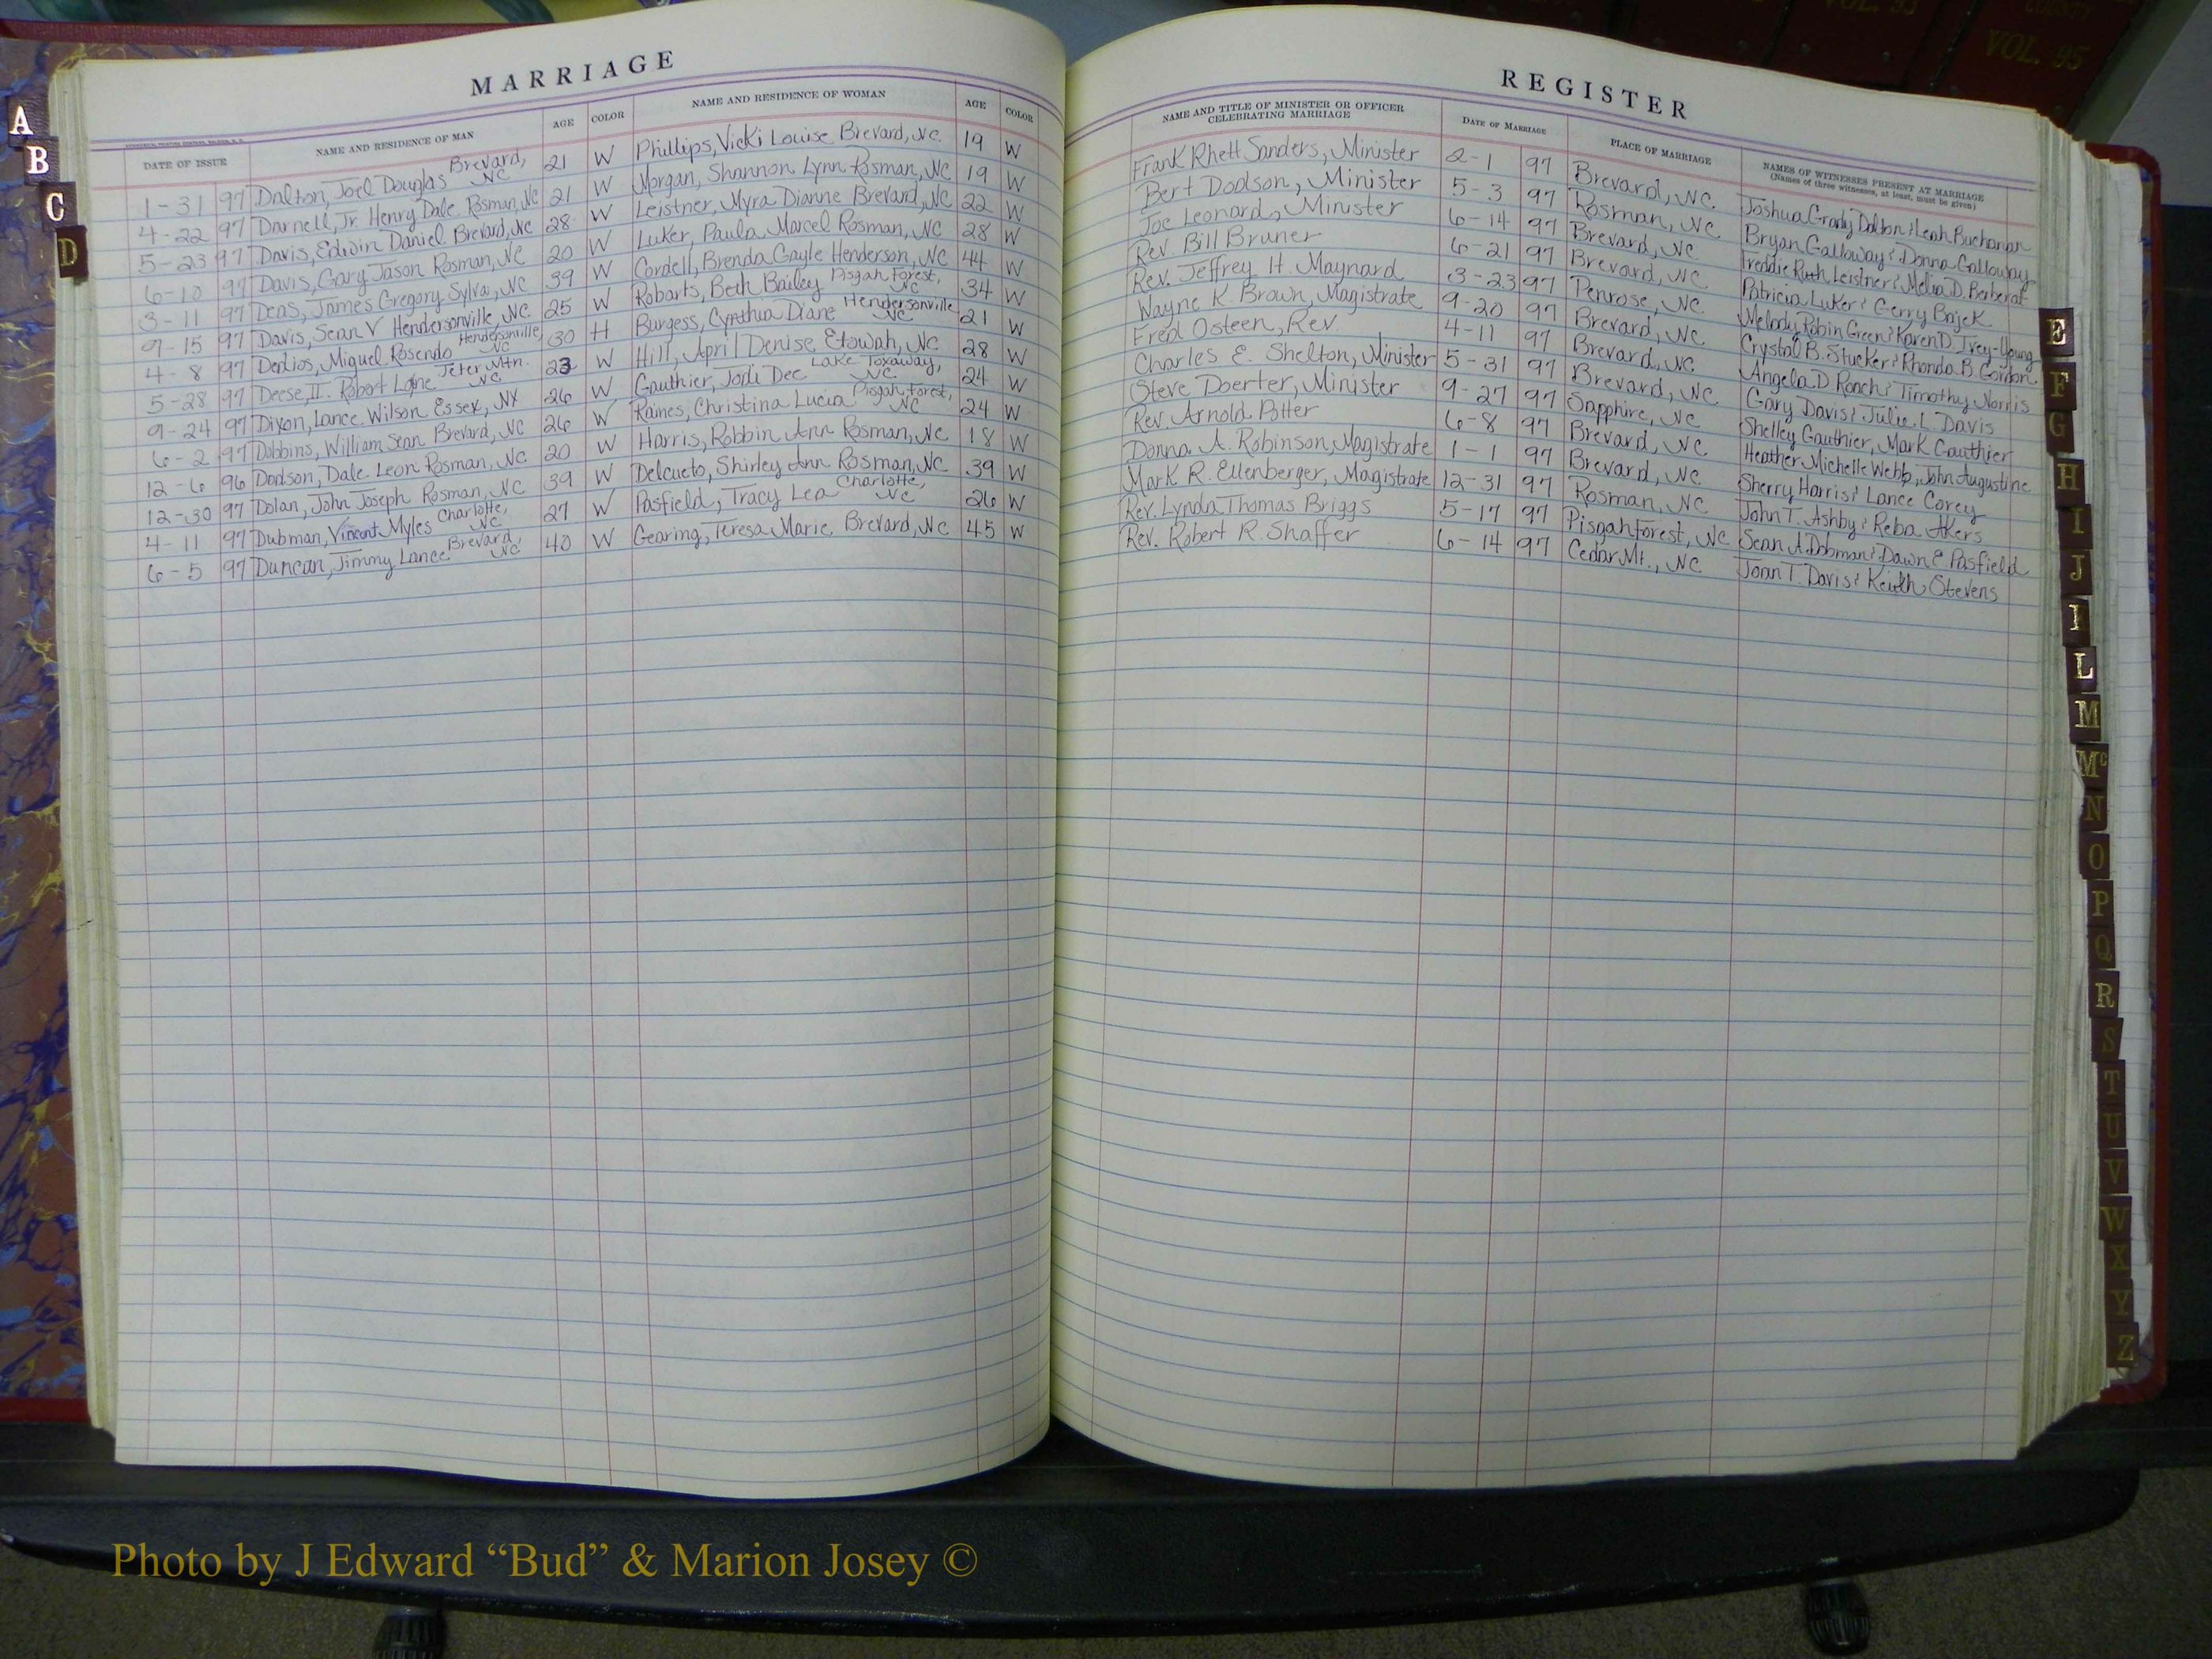 COUNTY
VOL. 93
VOL. 95
MARRIAGE
REGISTER
DATE OF ISSUE NAME AND RESIDENCE OF MAN AGE COLOR NAME AND RESIDENCE OF WOMAN AGE COLOR NAME AND TITLE OF MINISTER OR OFFICER CELEBRATING MARRIAGE DATE OF MARRIAGE PLACE OF MARRIAGE NAMES OF WITNESSES PRESENT AT MARRIAGE (Names of three witnesses, at least, must be given)
1-31 97 Dalton, Joel Douglas Brevard, NC 21 W Phillips, Vicki Louise Brevard, NC. 19 W Frank Rhett Sanders, Minister 2-1 97 Brevard, NC. Joshua Grady Dalton & Leah Buchanan
4-22 97 Darnell, Jr. Henry Dale Rosman, NC 21 W Morgan, Shannon Lynn Rosman, NC 19 W Bert Dodson, Minister 5-3 97 Rosman, NC Bryan Galloway & Donna Galloway
5-23 97 Davis, Edwin Daniel Brevard, NC 28 W Leistner, Myra Dianne Brevard, NC 22 W Joe Leonard, Minister 6-14 97 Brevard, NC Freddie Ruth Leistner & Melia D.
6-10 97 Davis, Gary Jason Rosman, NC 20 W Luker, Paula Marcel Rosman, NC 28 W Rev. Bill Bruner 6-21 97 Brevard, NC Patricia Luker & Gerry Bajek
3-11 97 Deas, James Gregory Sylva, NC 39 W Cordell, Brenda Gayle Henderson, NC 44 W Rev. Jeffrey H. Maynard 3-23 97 Penrose, NC Melody Robin Green & Karen D. Ivey-Young
9-15 97 Davis, Sean V Hendersonville, NC 25 W Robarts, Beth Bailey Pisgah Forest, NC 34 W Wayne K. Brown, Magistrate 9-20 97 Brevard, NC Crystal B. Stucker & Rhonda B. Gordon
4-8 97 Dedios, Miguel Rosendo Hendersonville, NC 30 H Burgess, Cynthia Diane Hendersonville NC 21 W Fred Osteen, Rev. 4-11 97 Brevard, NC Angela D. Roach & Timothy Norris
5-28 97 Deese, II. Robert Lane Jeter Mtn. NC 23 W Hill, April Denise, Etowah, NC 28 W Charles E. Shelton, Minister 5-31 97 Brevard, NC Gary Davis & Julie L. Davis
9-24 97 Dixon, Lance Wilson Essex, NY 26 W Gauthier, Jodi Dee Lake Toxaway, NC 24 W Steve Doerter, Minister 9-27 97 Sapphire, NC Shelley Gauthier, Mark Gauthier
6-2 97 Dobbins, William Sean Brevard, NC 26 W Raines, Christina Lucia Pisgah Forest, NC 24 W Rev. Arnold Potter 6-8 97 Brevard, NC Heather Michelle Webb, John Augustine
12-6 96 Dodson, Dale Leon Rosman, NC 20 W Harris, Robbin Ann Rosman, NC 18 W Donna A. Robinson, Magistrate 1-1 97 Brevard, NC Sherry Harris & Lance Corey
12-30 97 Dolan, John Joseph Rosman, NC 39 W Delcueto, Shirley Ann Rosman, NC 39 W Mark R. Ellenberger, Magistrate 12-31 97 Rosman, NC John T. Ashby & Reba Akers
4-11 97 Dubman, Vincent Myles Charlotte, NC 27 W Pasfield, Tracy Lea Charlotte, NC 26 W Rev. Lynda Thomas Briggs 5-17 97 Pisgah Forest, NC Sean A. Dobman & Dawn E Pasfield
6-5 97 Duncan, Jimmy Lance Brevard, NC 40 W Gearing, Teresa Marie Brevard, NC 45 W Rev. Robert R. Shaffer 6-14 97 Cedar Mt., NC Joan T. Davis & Keith Stevens
A
B
C
D
E
F
G
H
I
J
L
M
Mc
N
O
P
Q
R
S
T
U
V
W
X
Y
Z
Photo by J Edward “Bud” & Marion Josey ©